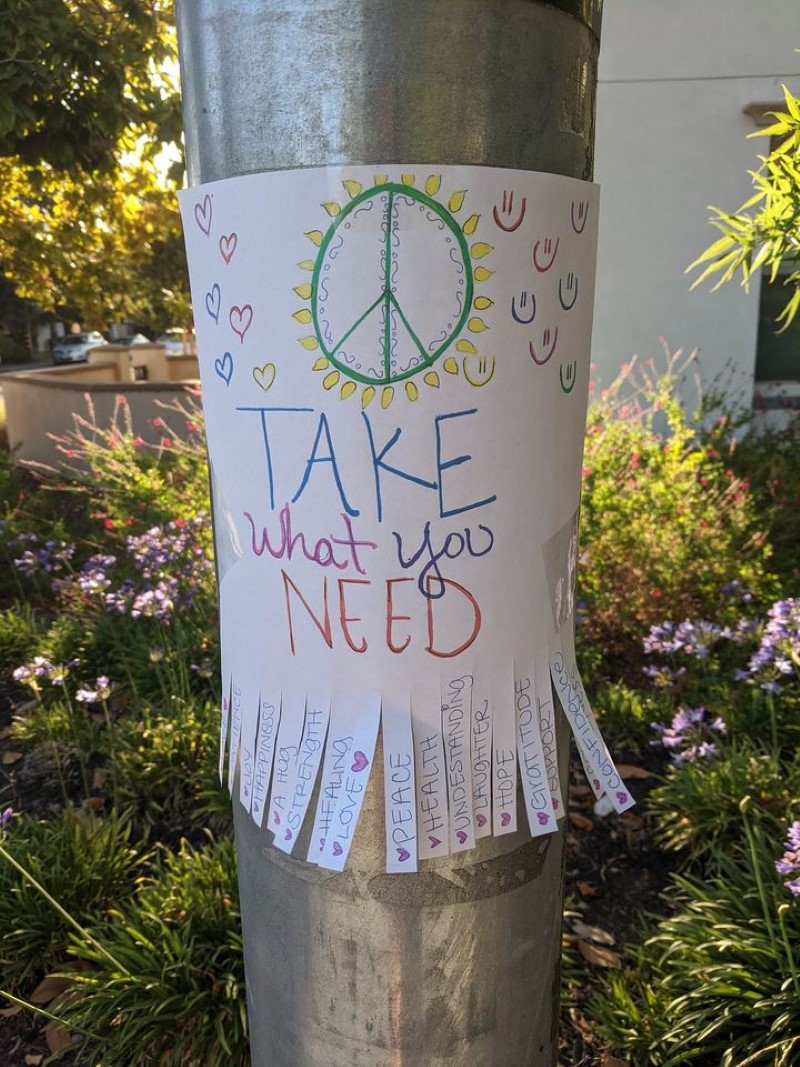 TAKE
what you
NEED
JOY
HAPPINESS
A HUG
STRENGTH
HEALING
LOVE
PEACE
HEALTH
UNDESTANDING
LAUGHTER
HOPE
GRATITUDE
SUPPORT
CONFIDENCE